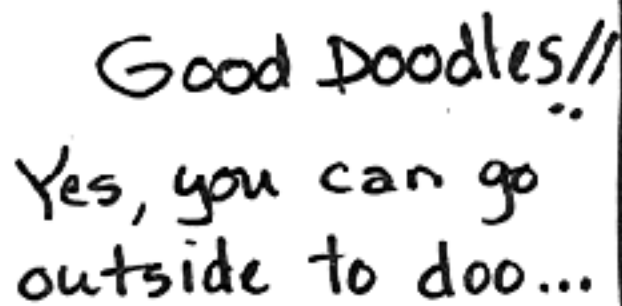 Good Doodles!!
Yes, you can go
outside to doo...